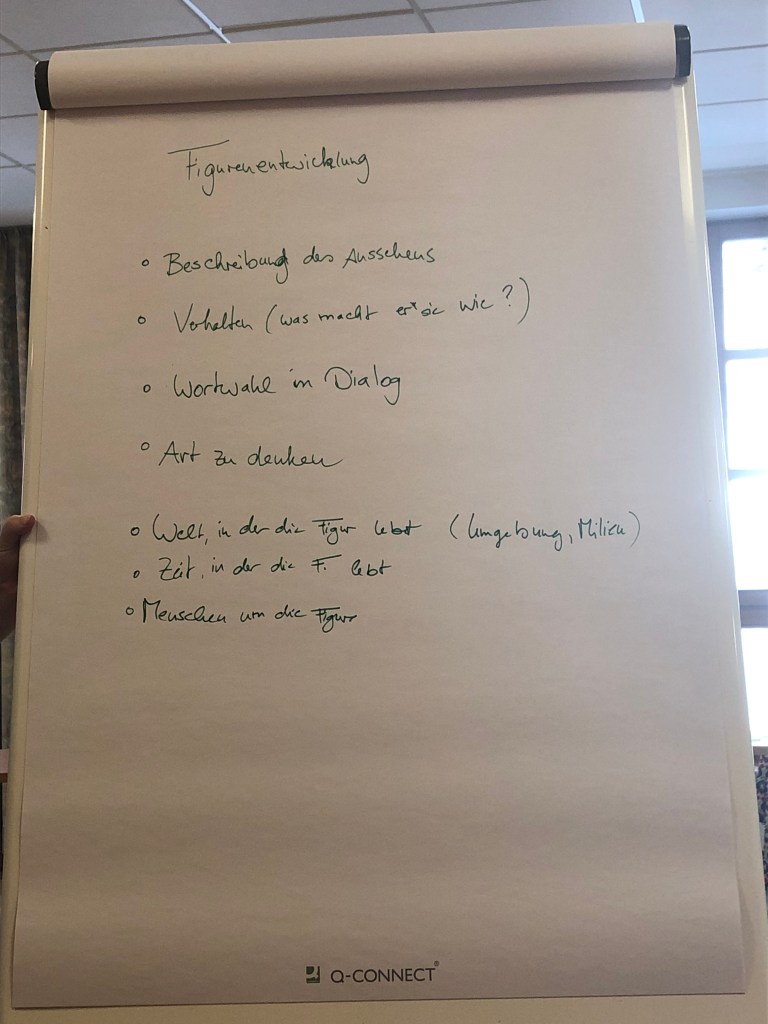 Figurenentwicklung
• Beschreibung des Aussehens
• Verhalten (was macht er*sie wie?)
• Wortwahl im Dialog
• Art zu denken
• Welt, in der die Figur lebt (Umgebung, Milieu)
• Zeit, in der die F. lebt
• Menschen um die Figur
Q-CONNECT®